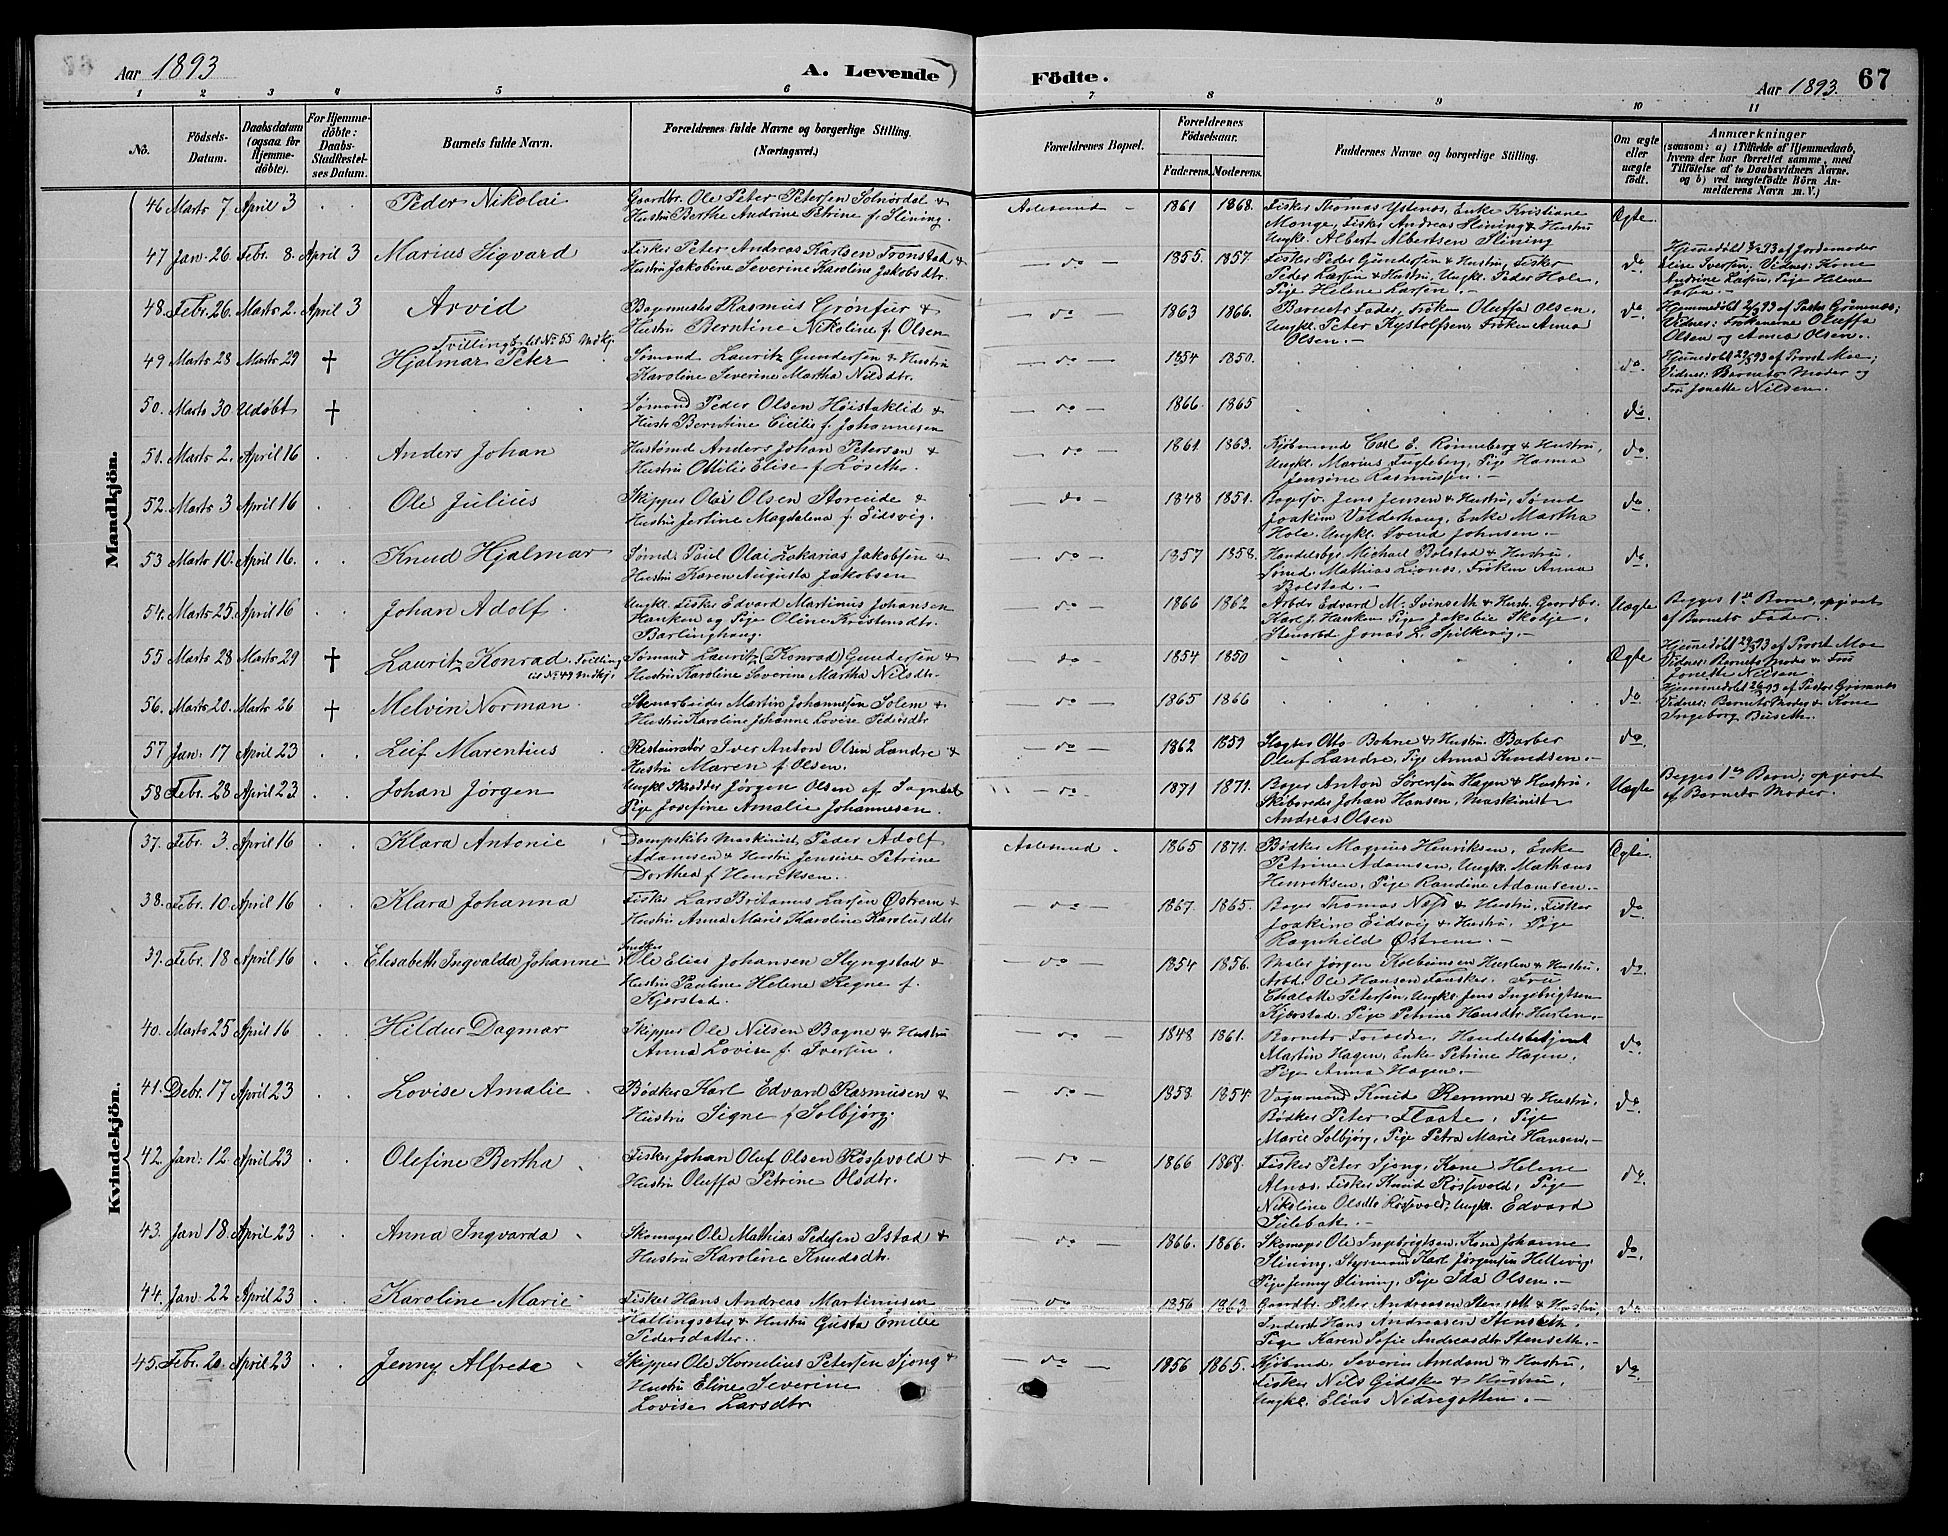 Aar 1893
A. Levende
Födte.
Aar 1893.
67
1 2 3 4 5 6 7 8 9 10 11
No.
Födsels-
Datum.
Daabsdatum
(ogsaa for
Hjemme-
döbte).
For Hjemme-
döbte:
Daabs-
Stadfæstel-
ses Datum.
Barnets fulde Navn.
Forældrenes fulde Navne og borgerlige Stilling.
(Næringsvei.)
Forældrenes Bopæl.
Forældrenes
Födselsaar.
Faderens. Moderens.
Faddernes Navne og borgerlige Stilling.
Om ægte
eller
uægte
født.
Anmærkninger
(saasom: a) i Tilfælde af Hjemmedaab,
hvem der har forrettet samme, med
Tilføielse af to Daabsvidners Navne.
og b) ved uægtefödte Börn An-
melderens Navn m. V.)
Mandkjön.
46 Marts 7 April 3 Peder Nikolai Gaardbr. Ole Peter Petersen Solnørdal &
Hustru Berthe Andrine Petrine f. Slining.
Aalesund 1861 1868. Fisker Thomas Ystenes, Enke Kristiane
Monge, Fisker Andreas Slining & Hustru
Ungk. Albert Albertsen Slining
Ægte.
47 Jan. 26 Febr. 8. April 3 Marius Sigvard Fisker Peter Andreas Karlsen Tronstad &
Hustru Jakobine Severine Karoline Jakobsdtr.
do 1855. 1857. Fisker Peder Gundersen & Hustru, Fisker
Peder Larsen & Hustru, Ungk. Peder Hole,
Pige Helene Larsen.
do Hjemmedøbt 8/2 93 af Jordemoder
Elise Iversen; Vidner: Kone
Andrine Larsen, Pige Helene
Larsen.
48. Febr. 26. Marts 2. April 3 Arvid Bogmester Rasmus Grønfur &
Hustru Berntine Nikoline f. Olsen
do 1863 1866. Barnets Fader, Frøken Oluffa Olsen,
Ungk. Peter Rystolfsen, Frøken Anna
Olsen.
do. Hjemmedøbt 2/3 93 af Pastor Grimnæs;
Vidner: Frøknerne Oluffa
Olsen og Anna Olsen.
Tvilling til No. 55 Mdkj.
49 Marts 28 Marts 29 † Hjalmar Peter Sømand Lauritz Gundersen & Hustru
Karoline Severine Martha Nilsdtr.
do 1854 1850. do. Hjemmedøbt 29/3 93 af Provst Moe;
Vidner: Barnets Moder og
Fru Jonette Nilsen.
50. Marts 30 Udøbt † Sømand Peder Olsen Høistaklid &
Hustr. Berntine Cicilie f. Johannesen
do 1866. 1865 do.
51. Marts 2. April 16 Anders Johan Hustømd Anders Johan Petersen &
Hustru Ottilie Elise f. Løseth.
do 1861 1863. Kjøbmand Carl E. Rønneberg & Hustru,
Ungk. Marius Fugleberg, Pige Hanna
Jensine Rasmussen.
do.
52. Marts 3 April 16 Ole Julius Skipper Olai Olsen Storeide &
Hustru Jertine Magdalena f. Eidsvig.
do 1848 1851. Bogsv. Jens Jensen & Hustru, Sømd
Joakim Valderhaug, Enke Martha
Hole. Ungk. Svend Johnsen.
do.
53 Marts 10. April 16. Knud Hjalmar Sømd. Paul Olai Zakarias Jakobsen &
Hustru Karen Augusta Jakobsen
do 1857 1858. Handelsbg. Michael Bolstad & Hustru.
Sømd. Mathias Lianes, Frøken Anna
Bolstad.
do.
54. Marts 25. April 16 Johan Adolf Ungk. Fisker Edvard Martinus Johansen
Hanken og Pige Oline Kristensdtr.
Barlinghaug.
do 1866 1862 Arbdr Edvard M. Svinseth & Hustr. Gaardbr.
Karl J. Hanken Pige Jakobie Skodje,
Stenarbd Jonas L. Spilkevig.
Uægte Begges 1ste Barn, opgivet
af Barnets Fader.
55 Marts 28 Marts 29 † Lauritz Konrad. Tvilling
til No. 49 Mdkj. Sømand Lauritz (Konrad) Gundersen &
Hustru Karoline Severine Martha Nilsdtr.
do 1854 1850 Ægte Hjemmedøbt 29/3 93 af Provst Moe
Vidner: Barnets Moder & Fru
Jonette Nilsen.
56. Marts 20. Marts 26 † Melvin Norman. Stenarbeider Martin Johannesen Solem &
Hustru Karoline Johanne Lovise Pedersdtr
do 1865 1866 do. Hjemmedøbt 26/3 93 af Pastor Grimnæs
Vidner: Barnets Moder & Kone
Ingeborg Buseth.
57 Jan. 17 April 23 Leif Marentius Restauratør Iver Anton Olsen Landre &
Hustru Maren f. Olsen.
do 1862 1859 Slagter Otto Bohne & Hustru. Barber
Oluf Landre, Pige Anna Knudsen.
do.
58. Febr. 28 April 23 Johan Jørgen Ungk. Skrædder Jørgen Olsen af Sogndal
Pige Josefine Amalie Johannesen.
do. 1871 1871. Bager Anton Sørensen Hagen & Hustru.
Skibsreder Johan Hansen, Maskinist
Andreas Olsen
Uægte Begges 1ste Barn; opgivet
af Barnets Moder.
Kvindekjön.
37. Febr. 3 April 16 Klara Antonie Dampskibs Maskinist Peder Adolf
Adamsen & Hustru Jensine Petrine
Dorthea f. Henriksen.
Aalesund. 1865 1871. Bødker Magnus Henriksen, Enke
Petrine Adamsen, Ungk. Mathæus
Henriksen, Pige Randine Adamsen.
Ægte.
38. Febr. 10 April 16 Klara Johanna Fisker Lars Britanus Larsen Østrem &
Hustru Anna Marie Karoline Karolusdtr
do 1867. 1865. Bager Thomas Næs & Hustru, Fisker
Joakim Eidsvig & Hustru. Pige
Ragnhild Østrem.
do.
39. Febr. 18 April 16 Elisabeth Ingvalda Johanne Snedker
Ole Elias Johansen Slyngstad &
Hustru Pauline Helene Regne f.
Kjerstad.
do 1854 1856. Maler Jørgen Kolbeinsen Huslen & Hustru.
Arbd. Ole Hansen Fauske. Fru
Chalotte Petersen, Ungk. Jens Ingebrigtsen
Kjerstad, Pige Petrine Hansdtr. Huslen.
do.
40. Marts 25 April 16 Hildur Dagmar Skipper Ole Nilsen Bagne & Hustru
Anna Lovise f. Iversen.
do 1848 1861. Barnets Forældre, Handelsbetjent
Martin Hagen, Enke Petrine Hagen,
Pige Anna Hagen.
do.
41. Debr. 17 April 23 Lovise Amalie Bødker Karl Edvard Rasmusen &
Hustru Signe f. Solbjørg.
do 1858. 1854. Vognmand Knut Remme & Hustru,
Bødker Peter Flaate, Pige
Marie Solbjørg, Pige Petra Marie Hansen.
do.
42. Jan. 12. April 23 Olefine Bertha Fisker Johan Oluf Olsen Røssevold &
Hustru Oluffa Petrine Olsdtr.
do 1866 1868. Fisker Peter Sjong, Kone Helene
Alnæs. Fisker Knud Røssevold, Pige
Nikoline Olsdtr Røssevold, Ungk. Edvard
Sulebak.
do.
43. Jan 18. April 23 Anna Ingvarda Skomager Ole Mathias Pedersen Istad &
Hustru Karoline Knudsdtr.
do 1866. 1866. Skomager Ole Ingebrigtsen. Kone Johanne
Slining, Styrmand Karl Jørgensen Hellevig
Pige Jenny Slining, Pige Ida Olsen.
do.
44. Jan. 22 April 23 Karoline Marie Fisker Hans Andreas Martinusen
Hallingsæter & Hustru Gusta Emilie
Pedersdatter.
do 1856 1863 Gaardbr. Peter Andreasen Stenseth & Hustru,
Inderst Hans Andreasen Stenseth.
Pige Karen Sofie Andreasdtr Stenseth.
do
45. Febr. 20. April 23 Jenny Alfrede Skipper Ole Kornelius Petersen Sjong &
Hustru Eline Severine
Lovise Larsdtr.
do 1856 1865. Kjøbmd. Severin Amdam & Hustru,
Fisker Nils Gidske & Hustru,
Ungk. Elias Nedregotten.
do.